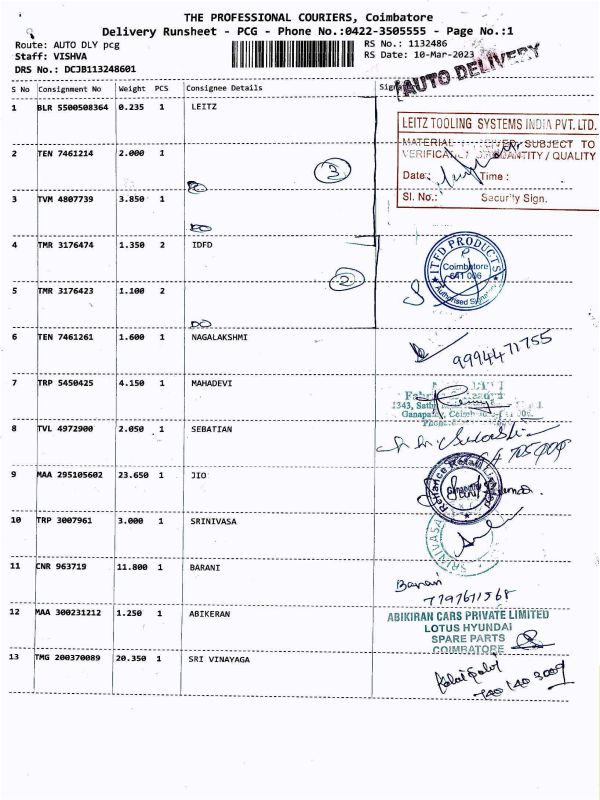 THE PROFESSIONAL COURIERS, Coimbatore
Delivery Runsheet - PCG - Phone No.:0422-3505555 - Page No.:1
Route: AUTO DLY pcg
RS No.: 1132486
Staff: VISHVA
RS Date: 10-Mar-2023
DRS No.: DCJB113248601
AUTO DELIVERY
S No Consignment No Weight PCS Consignee Details
1 BLR 5500508364 0.235 1 LEITZ
LEITZ TOOLING SYSTEMS INDIA PVT. LTD.
MATERIAL SUBJECT TO
QUANTITY / QUALITY
Date: Time :
Sl. No.: Security Sign.
2 TEN 7461214 2.000 1
3
DO
3 TVM 4807739 3.850 1
DO
4 TMR 3176474 1.350 2 IDFD
ITFD PRODUCTS
Coimbatore
641 006
Authorised Signatory
2
5 TMR 3176423 1.100 2
DO
6 TEN 7461261 1.600 1 NAGALAKSHMI
9994471755
7 TRP 5450425 4.150 1 MAHADEVI
8 TVL 4972900 2.050 1 SEBATIAN
9 MAA 295105602 23.650 1 JIO
Reliance Retail Limited
10 TRP 3007961 3.000 1 SRINIVASA
SRINIVASA
11 CNR 963719 11.800 1 BARANI
Barani
7797671568
12 MAA 300231212 1.250 1 ABIKERAN
ABIKIRAN CARS PRIVATE LIMITED
LOTUS HYUNDAI
SPARE PARTS
COIMBATORE
13 TMG 200370089 20.350 1 SRI VINAYAGA